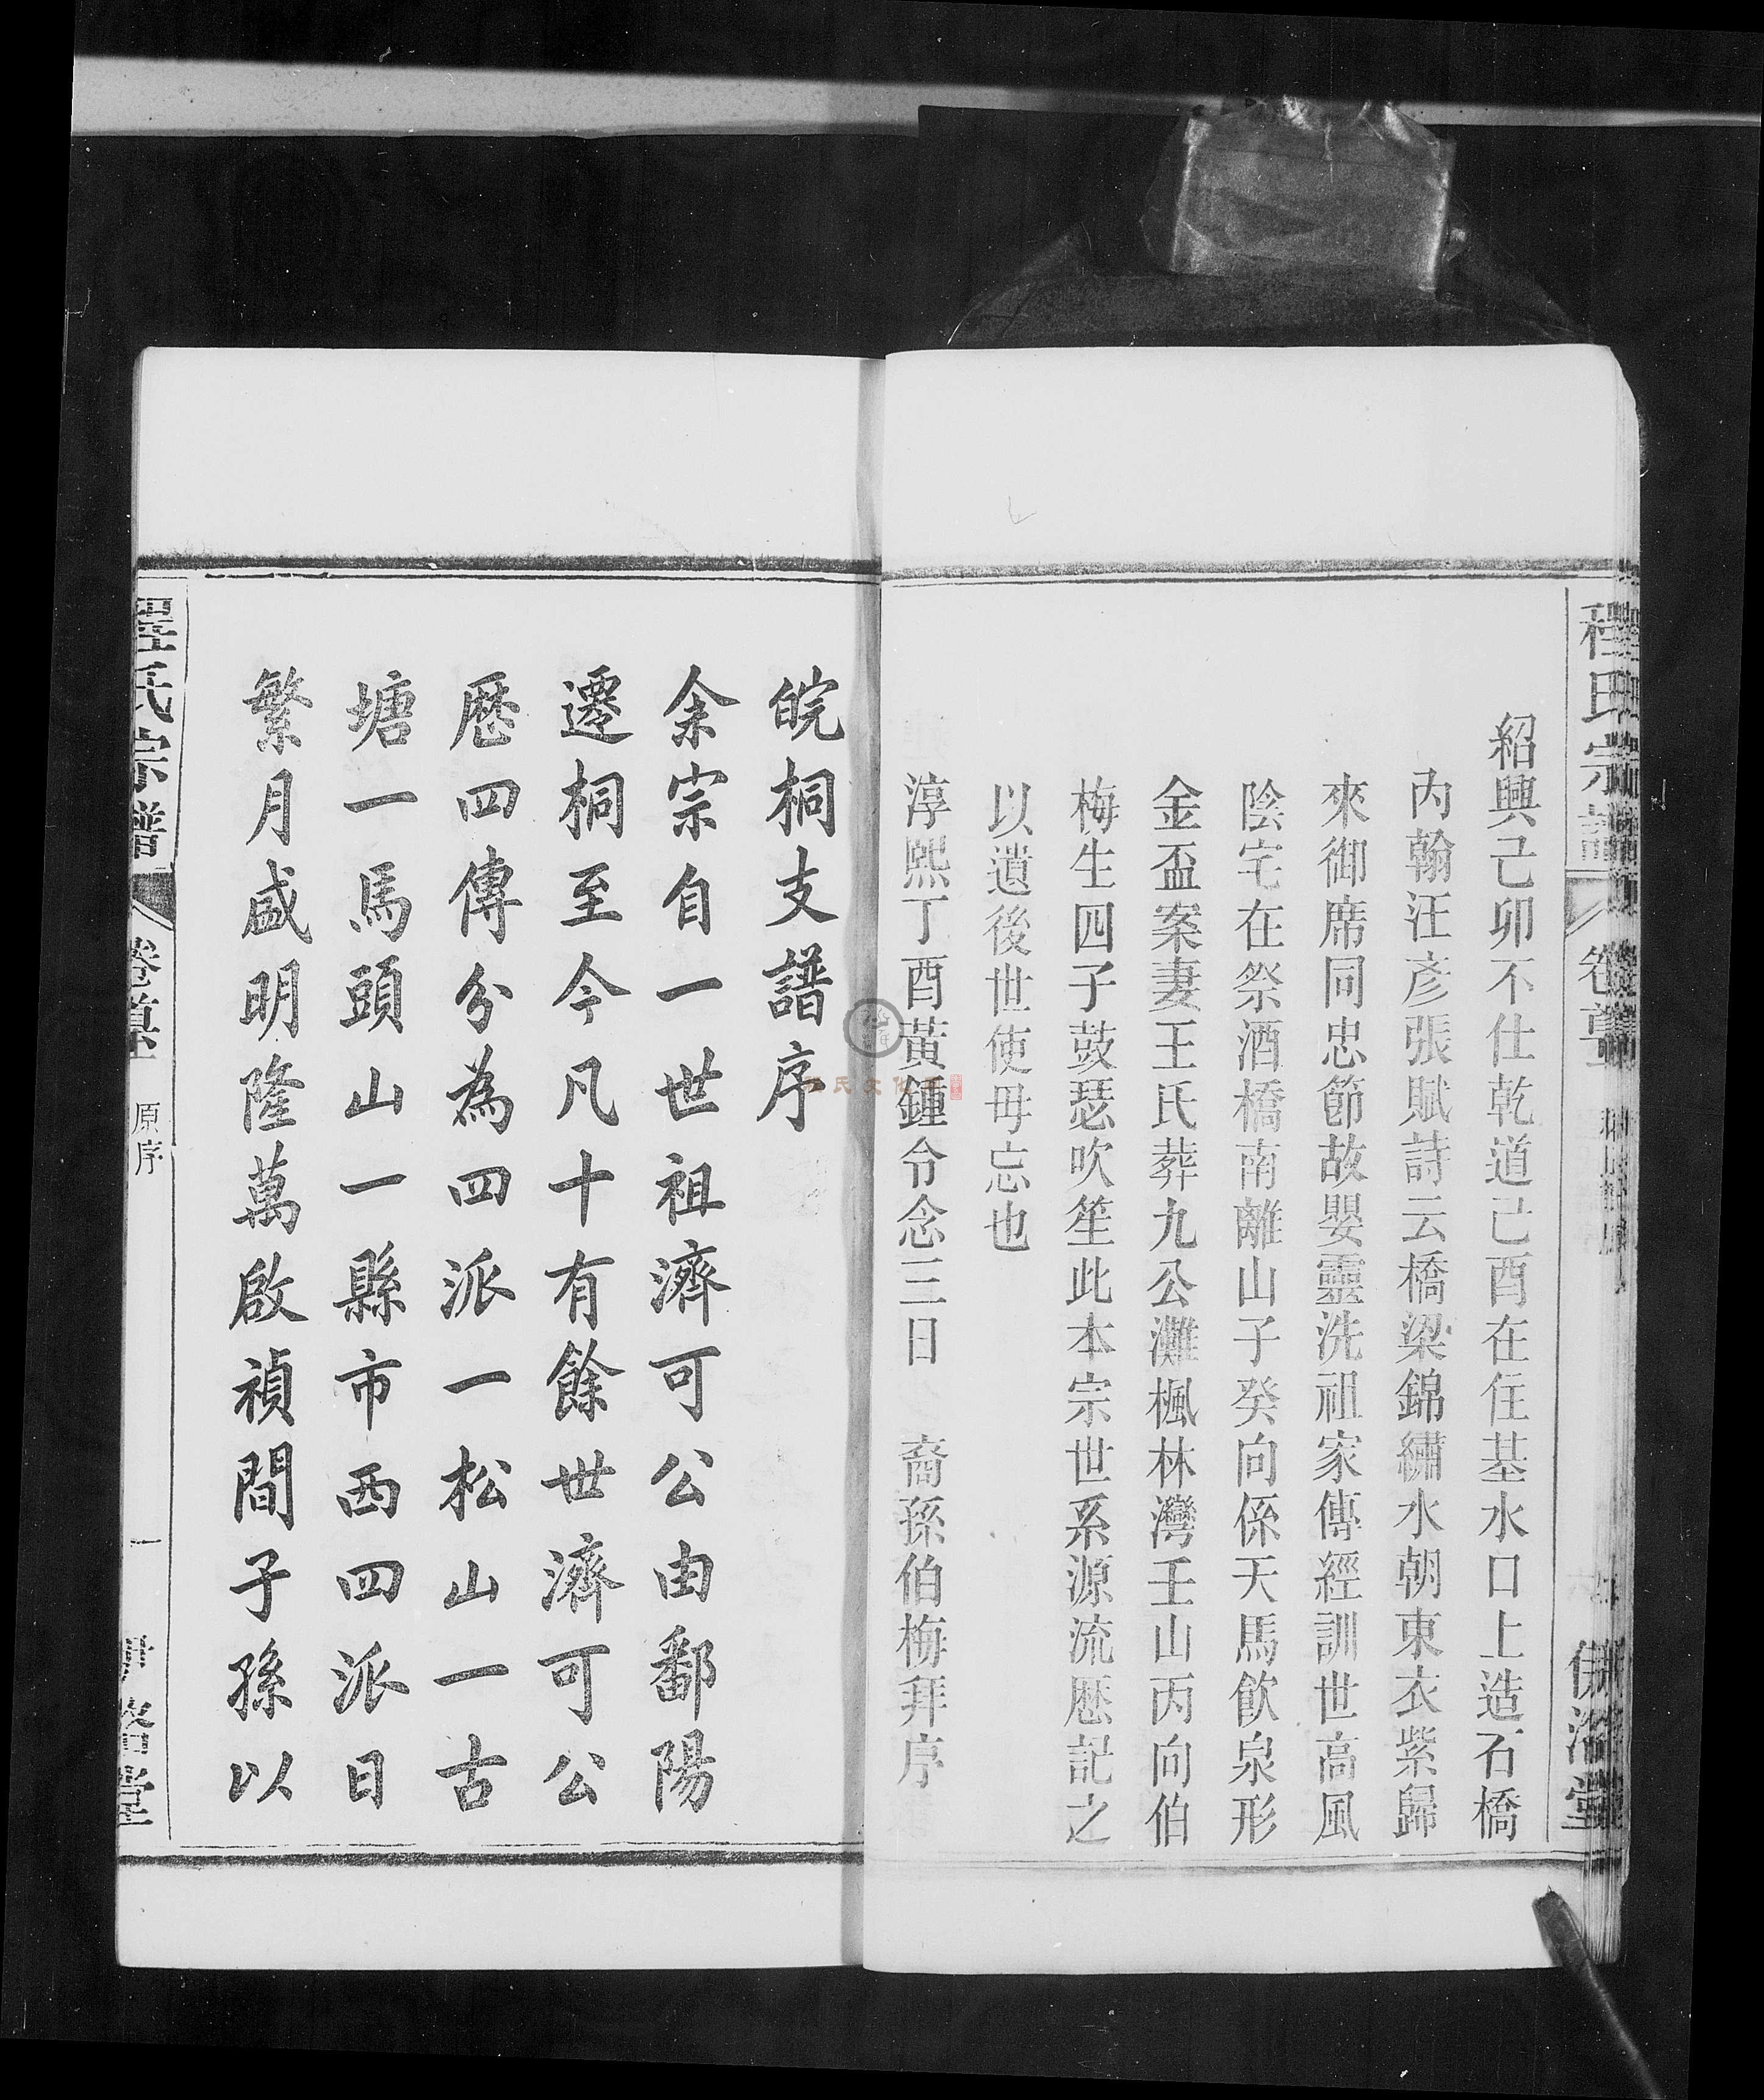 程氏宗譜
卷首
伊洛堂
紹興己卯不仕乾道己酉在住基水口上造石橋
內翰汪彥張賦詩云橋梁錦繡水朝東衣紫歸
來御席同忠節故嬰靈洗祖家傳經訓世高風
陰宅在祭酒橋南離山子癸向係天馬飲泉形
金盃案妻王氏葬九公灘楓林灣壬山丙向伯
梅生四子鼓瑟吹笙此本宗世系源流歷記之
以遺後世使毋忘也
淳熙丁酉黃鍾令念三日 裔孫伯梅拜序
皖桐支譜序
余宗自一世祖濟可公由鄱陽
遷桐至今凡十有餘世濟可公
歷四傳分為四派一松山一古
塘一馬頭山一縣市西四派日
繁月盛明隆萬啟禎間子孫以
程氏宗譜
卷首
原序
一
伊洛堂